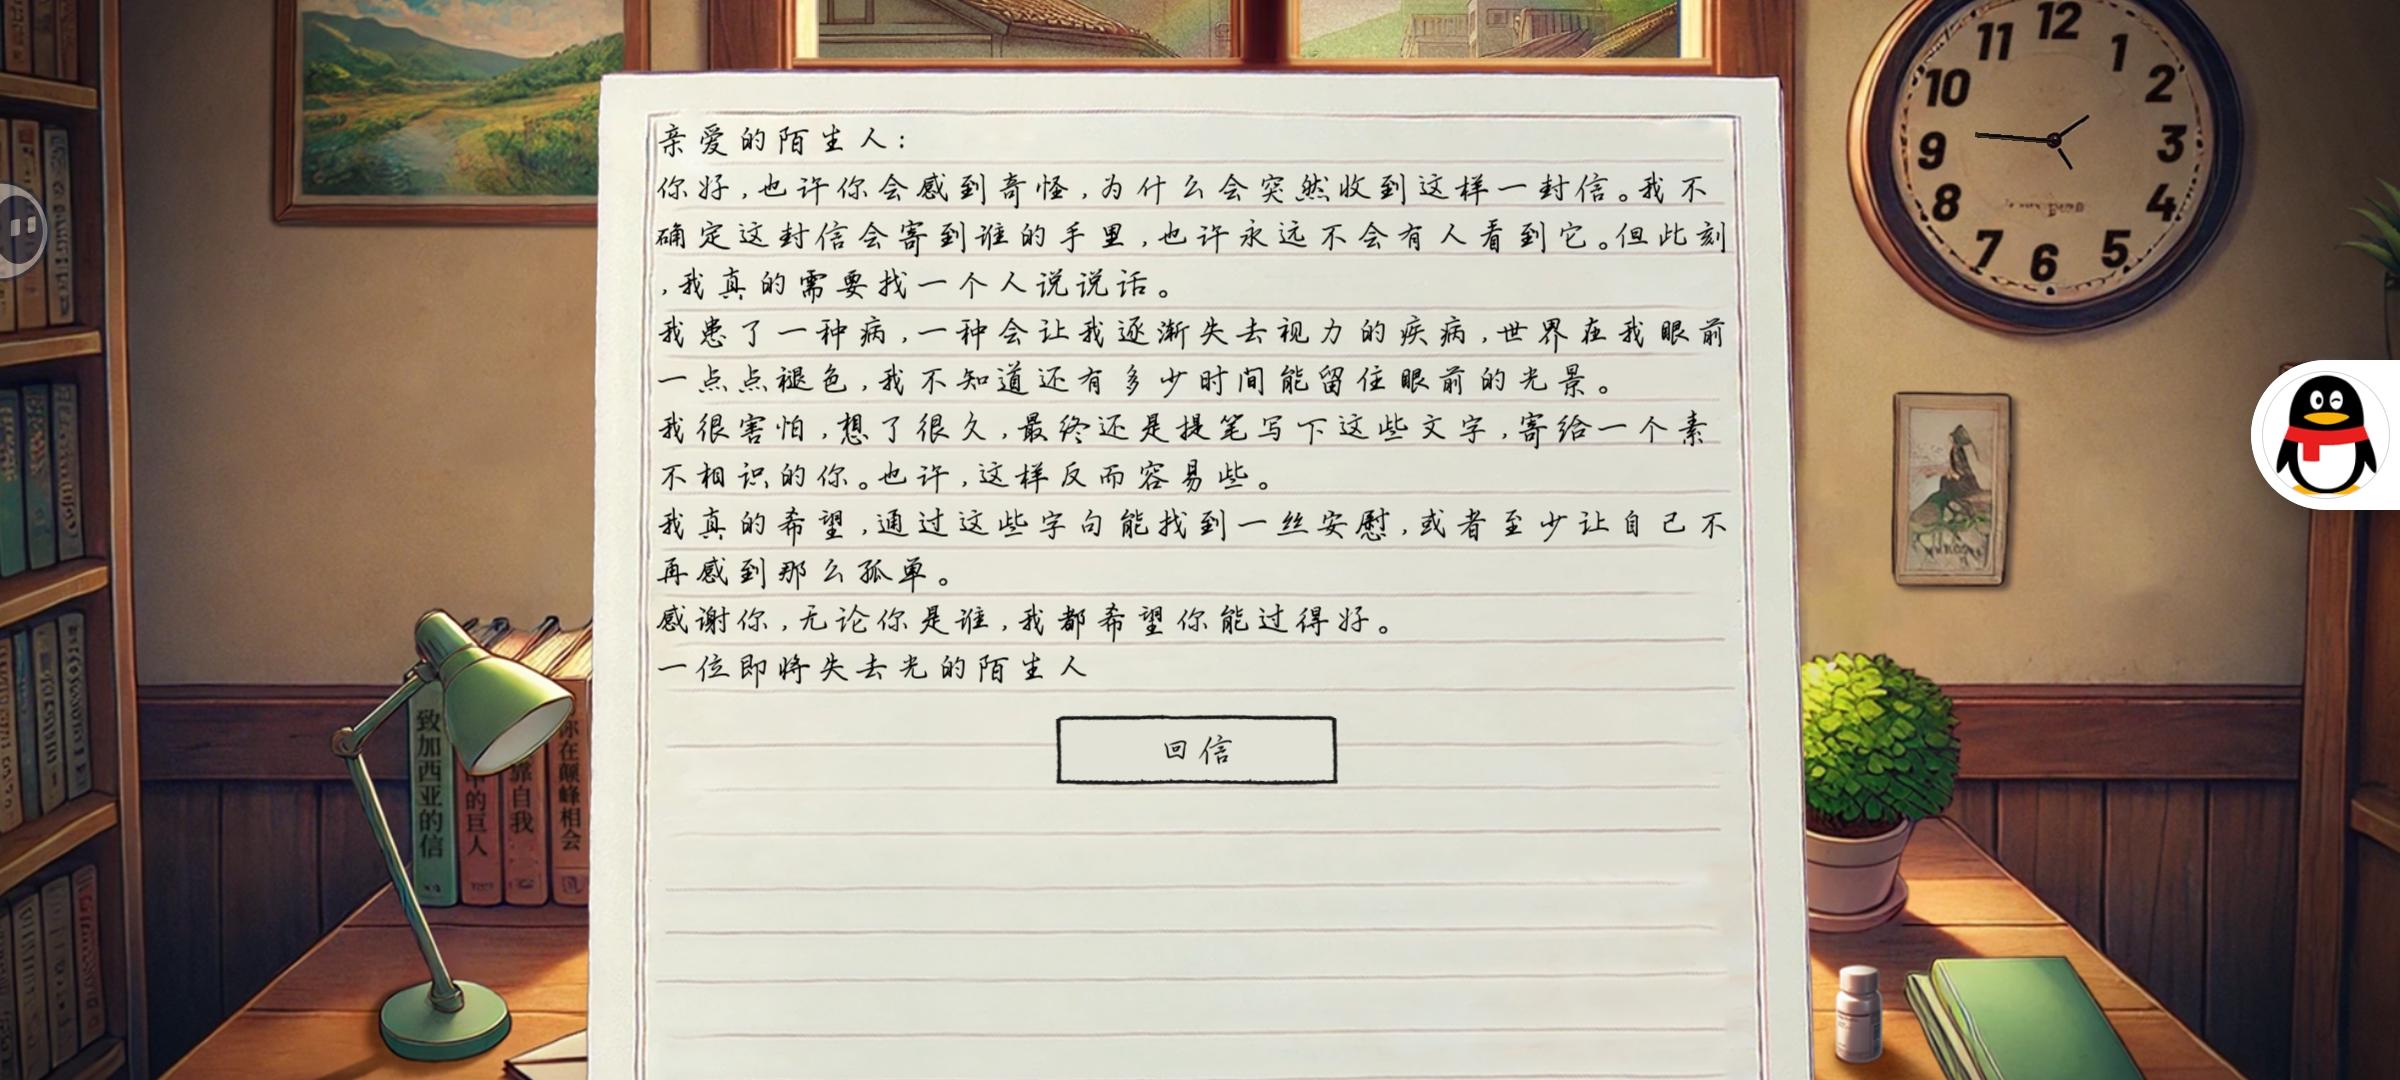 亲爱的陌生人：
你好,也许你会感到奇怪,为什么会突然收到这样一封信。我不
确定这封信会寄到谁的手里,也许永远不会有人看到它。但此刻
,我真的需要找一个人说说话。
我患了一种病,一种会让我逐渐失去视力的疾病,世界在我眼前
一点点褪色,我不知道还有多少时间能留住眼前的光景。
我很害怕,想了很久,最终还是提笔写下这些文字,寄给一个素
不相识的你。也许,这样反而容易些。
我真的希望,通过这些字句能找到一丝安慰,或者至少让自己不
再感到那么孤单。
感谢你,无论你是谁,我都希望你能过得好。
一位即将失去光的陌生人
回信
致加西亚的信
中的巨人
靠自我
你在颠峰相会
12
1
2
3
4
5
6
7
8
9
10
11